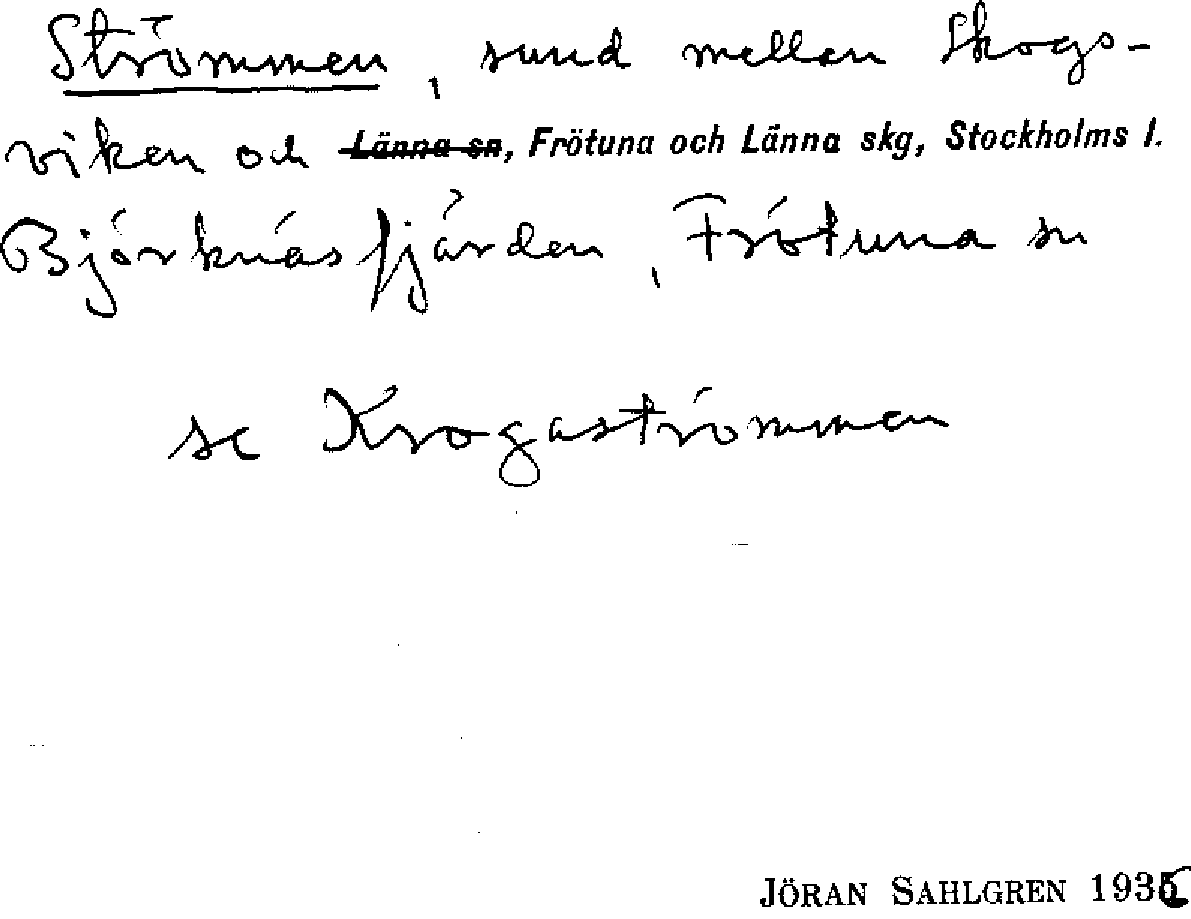 Strömmen, sund mellan Skogs-
viken och Länna sn, Frötuna och Länna skg, Stockholms l.
Björknäsfjärden, Frötuna sn
se Krogaströmmen
JÖRAN SAHLGREN